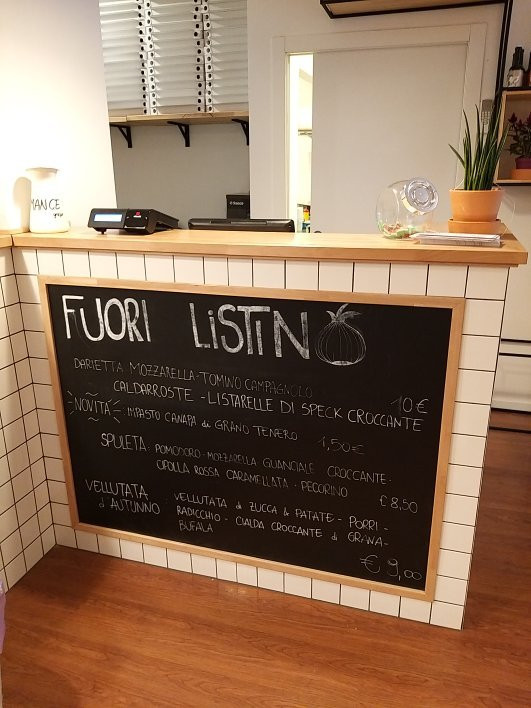 MANCE
FUORI LiSTiN
DARIETTA MOZZARELLA-TOMINO CAMPAGNOLO
CALDARROSTE - LISTARELLE DI SPECK CROCCANTE 10€
NOVITA' IMPASTO CANAPA di GRANO TENERO 1,50€
SPULETA- POMODORO- MOZZARELLA GUANCIALE CROCCANTE-
CIPOLLA ROSSA CARAMELLATA - PECORINO € 8,50
VELLUTATA
d'AUTUNNO
VELLUTATA di ZUCCA & PATATE - PORRI -
RADICCHIO - CIALDA CROCCANTE di GRANA-
BUFALA
€ 9,00